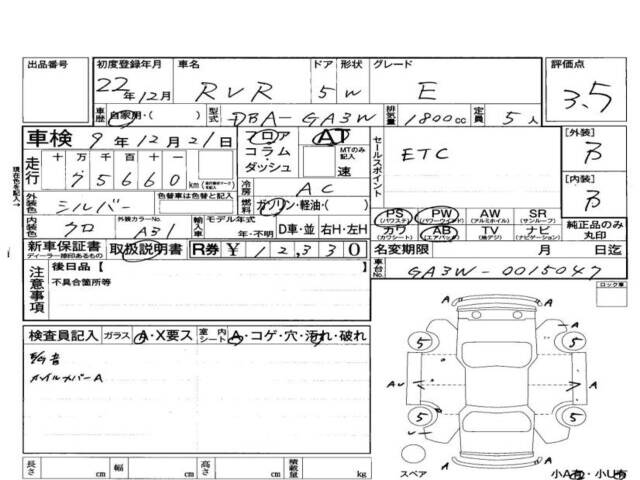 出品番号 初度登録年月 車名 ドア 形状 グレード 評価点
22年12月 RVR 5 W E 3.5
車歴 自家用・( ) 型式 DBA-GA3W 排気量 1800cc 定員 5人
車検 9年12月21日 フロア AT セールスポイント ETC [外装]
コラム・ MTのみ記入 B
ダッシュ 速
走行 十万千百十一
75660 km
現在色を記入→
冷房 AC [内装]
外装色 シルバー 色替車は色替と記入 燃料 ガソリン・軽油・( ) B
PS PW AW SR
(パワステ) (パワーウインド) (アルミホイル) (サンルーフ)
内装色 クロ 外装カラーNo. A31 輸入車 モデル年式 年・不明 D車・並 右H・左H
カワ AB TV ナビ 純正品のみ丸印
(カワシート) (エアバック) (地デジ) (ナビゲーション)
新車保証書 取扱説明書 R券 ¥12,330 名変期限 月 日迄
ディーラー捺印あるもの
車台No. GA3W-0015047
注意事項 後日品【
不具合箇所等
ロック車
検査員記入 ガラス A・X要ス 室内シート A・コゲ・穴・汚れ・破れ
A A
5 5
AU A
5 5
A
長さ cm 幅 cm 高さ cm 積載量 kg
スペア 小A有 小U有